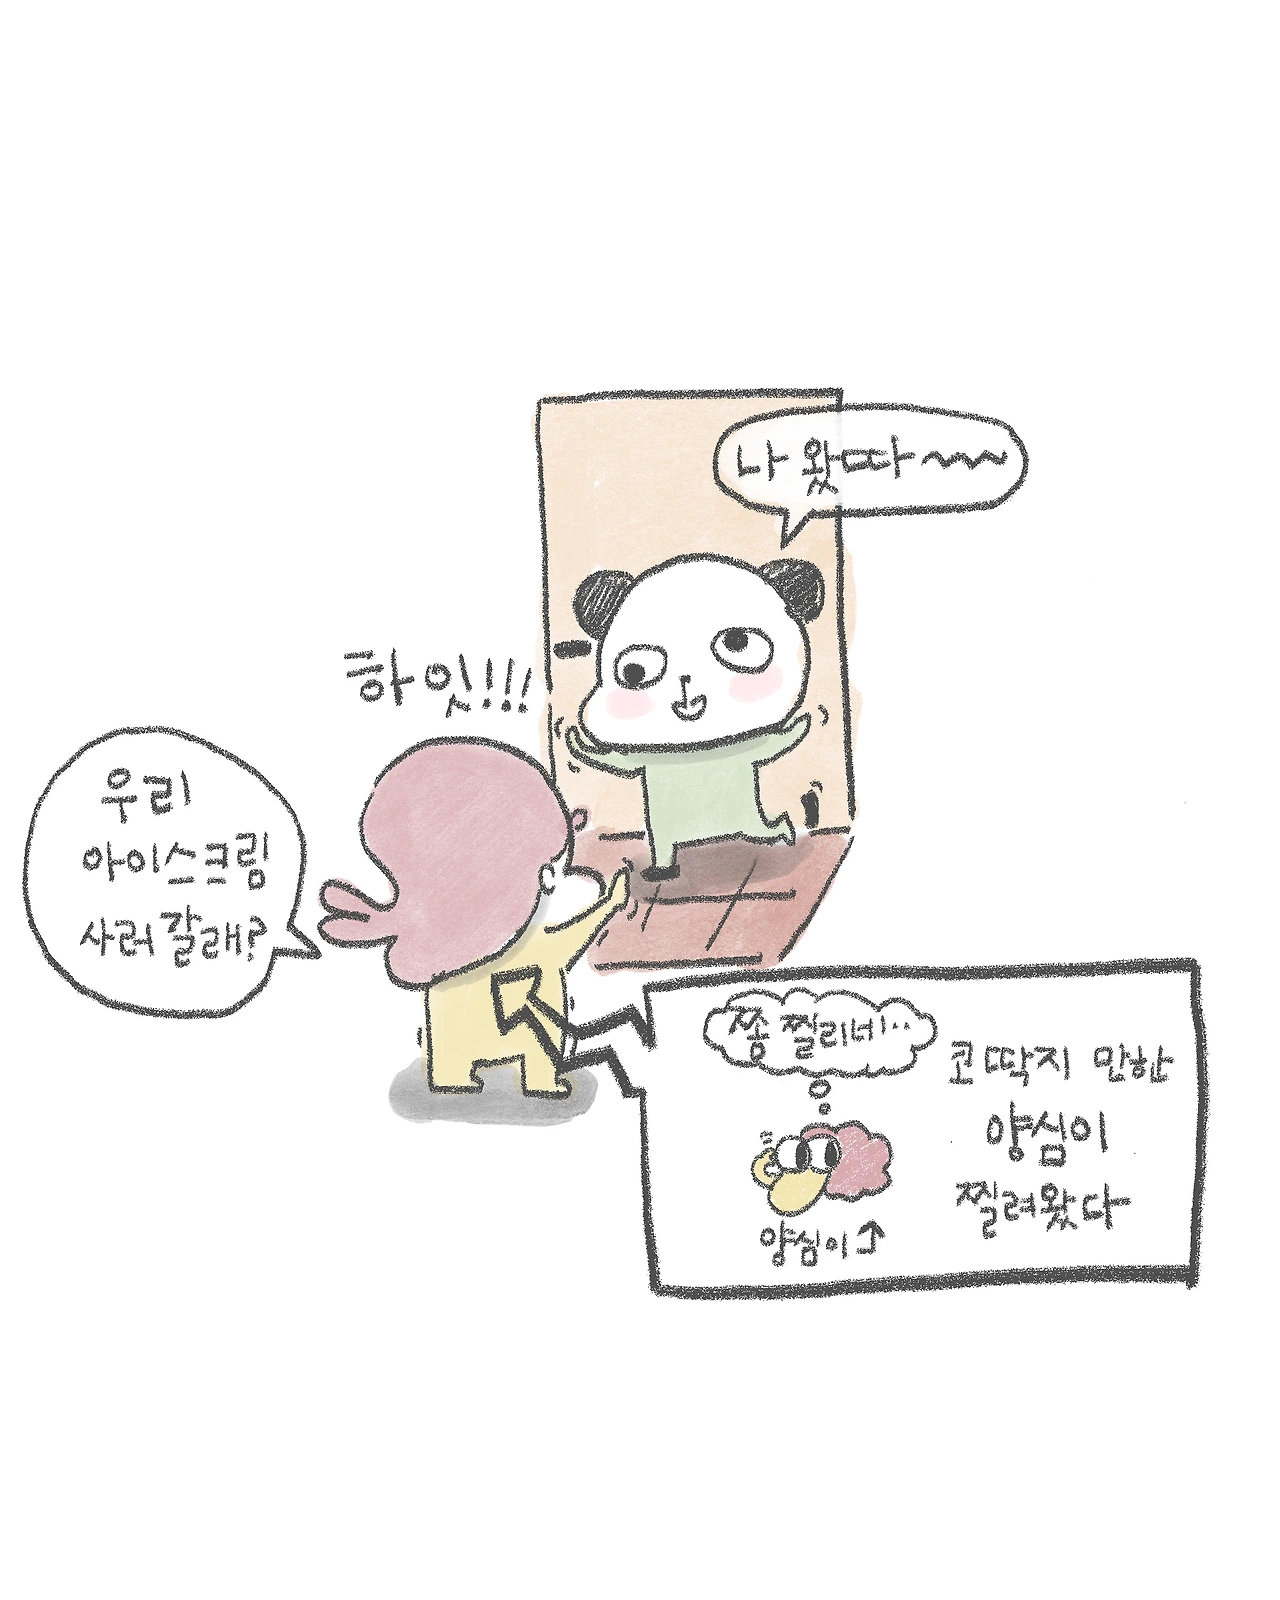 나 왔따~~~
하잇!!!
우리
아이스크림
사러갈래?
쫌 찔리네..
코딱지 만한
양심이
찔려왔다
양심이↑